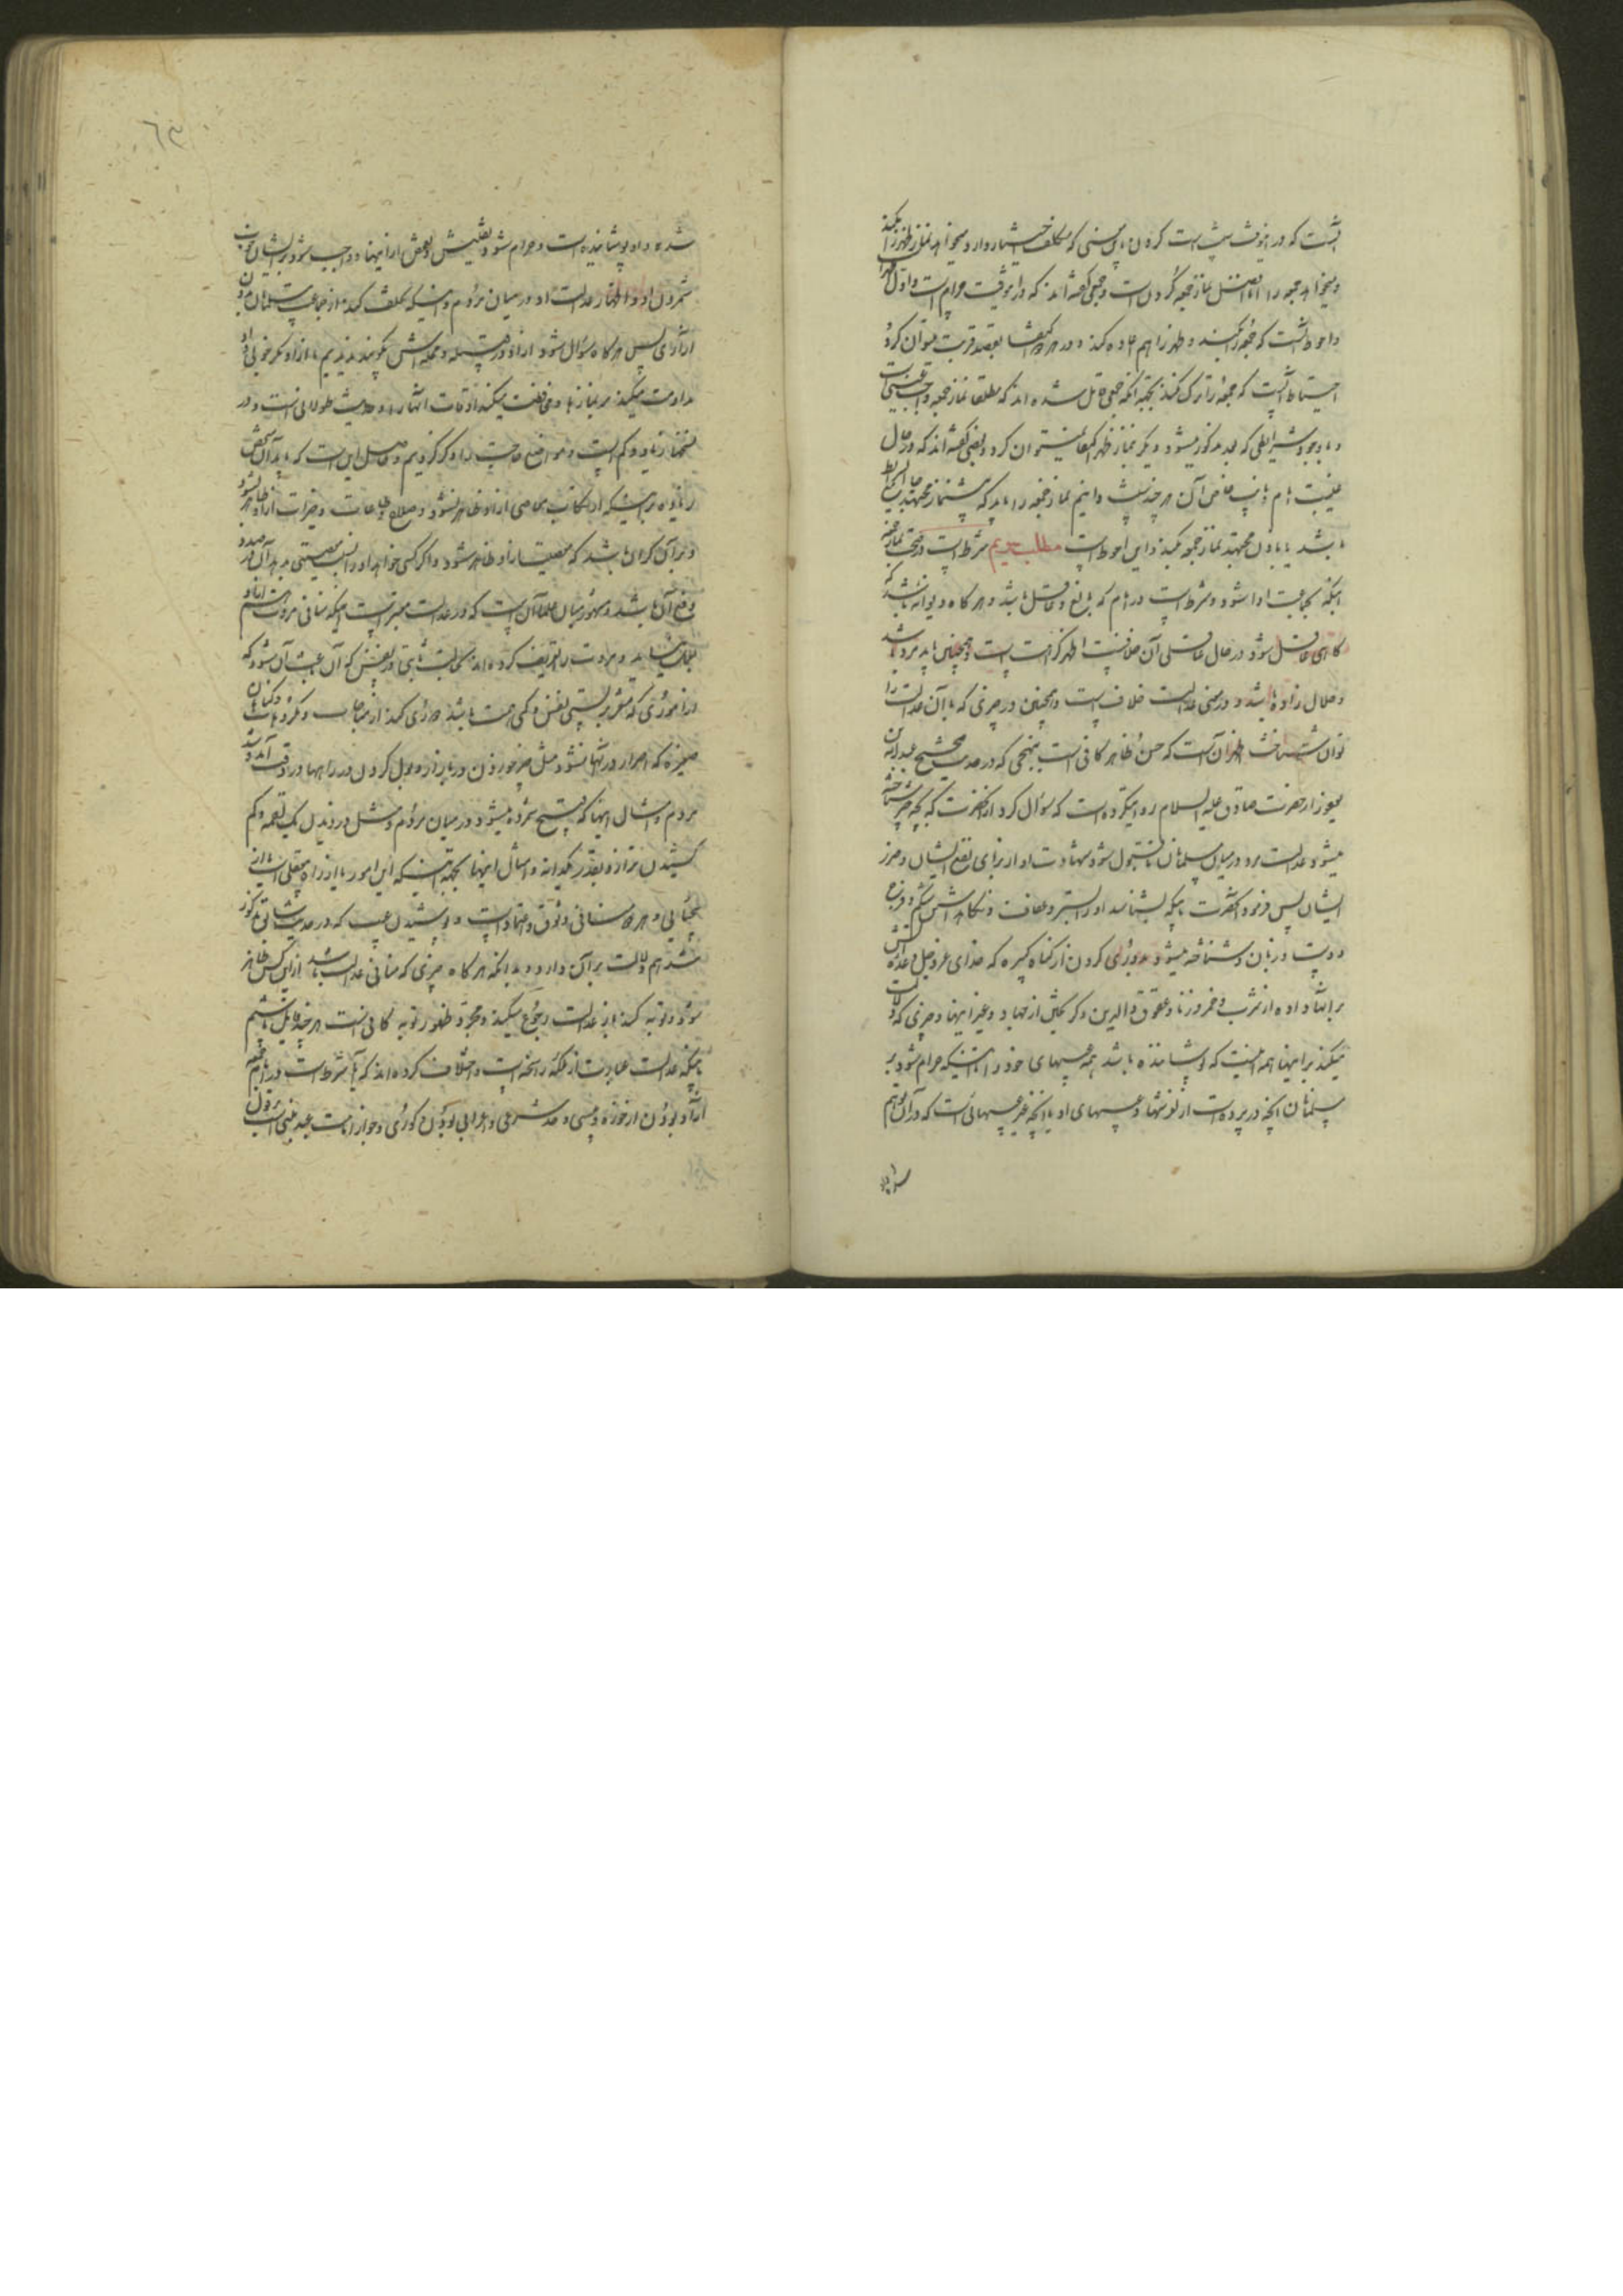 آنست که در اینوقت سنت است کردن آن باین معنی که مکلف اختیار دارد میخواهد نماز ظهر را میکند
و میخواهد جمعه را اما افضل نماز جمعه کردن است و جمعی گفته اند که در این وقت حرام است و اول
و احوط آنست که جمعه را بکند و ظهر را هم اعاده کند و در هر دو بقصد قربت میتوان کرد
احتیاط آنست که جمعه را ترک نکند بجهة آنکه جمعی قایل شده اند که مطلقا نماز جمعه واجب عینی است
و با وجود شرایطی که بعد مذکور میشود دیگر بنماز ظهر اکتفا نمیتوان کرد و بعضی گفته اند که در حال
غیبت امام یا نایب خاص آن هر چند سنت دانیم نماز جمعه را باید که پیشنماز مجتهد جامع الشرایط
باشد یا باذن مجتهد نماز جمعه کند و این احوط است مطلب سیم شرط است در صحت نماز جمعه
اینکه بجماعت ادا شود و شرط است در امام که بالغ و عاقل باشد و هر گاه دیوانه باشد که
گاهی عاقل شود در حال عاقلی آن خلافست اظهر کراهت است و همچنین باید مرد باشد
و حلال زاده باشد و در معنی عدالت خلاف است و همچنین در چیزی که بآن عدالت را
توان شناخت اظهر آن است که حسن ظاهر کافی است بنهجی که در حدیث صحیح عبدالله بن
یعفور از حضرت صادق علیه السلام روایتکرده است که سؤال کرد از آنحضرت که بچه چیز شناخته
میشود عدالت مرد در میان مسلمانان تا قبول شود شهادت او از برای نفع ایشان و ضرر
ایشان پس فرمود آنحضرت باینکه بشناسد او را بستر و عفاف و نگاه داشتن شکم و فرج
و دست و زبان و شناخته میشود بدوری کردن از گناه کبیره که خدای عز و جل وعده آتش
بر آنها داده از شرب خمر و زنا و عقوق والدین و گریختن از جهاد و غیر اینها و چیزی که دلالت
میکند بر اینها همه اینست که پوشاننده باشد همه عیبهای خود را تا اینکه حرام شود بر
مسلمانان آنچه در پرده است از لغزشها و عیبهای او یا آنچه غیر عیبهائی است که در آن
شده و او پوشانیده است و حرام شود تفتیش بعضی از اینها و واجب شود بر ایشان خوب
شمردن او و اظهار عدالت او در میان مردم و اینکه تخلف نکند از جماعت مسلمانان
پس هر گاه سؤال شود از او در قبیله و محله اش بگویند ندیدیم ما از او مگر خوبی
مداومت میکند بر نمازها و محافظت میکند اوقات آنها را و حدیث طولانی است و در
نسخها زیاد و کم است و مواضع حاجت را ذکر کردیم و حاصل این است که باید آن شخص
معاصی از او ظاهر نشود و صلاح و طاعات و خیرات از او ظاهر شود
و بر آن گواهی باشد که معصیت از او ظاهر نشود و اگر کسی خواهد او را نسبت بمعصیتی بدهد
دفع آن باشد و مشهور میان علما آن است که در عدالت معتبر است اینکه منافی مروت هم
بعمل نیاید و مروت را تعریف کرده اند بحالت ثابتی در نفس که آن باعث آن شود که
از اموری که مشعر بر پستی نفس و کمی همت باشد دوری کند از مباحات و مکروهات و گناهان
صغیره که اصرار در آنها نشود مثل چیز خوردن در بازار و بول کردن در راهها در وقت آمد و شد
مردم و امثال اینها که قبیح شمرده میشود در میان مردم و مثل دزدیدن یک لقمه و کم
کشیدن ترازو بقدر یکدانه و امثال اینها بجهة اینکه این امور یا از راه بیعقلی است یا از
بیحیائی و هر دو منافی وثوق و اعتماد است و پوشیدن عیب که در حدیث سابق مذکور
شد هم دلالت بر آن دارد و بدانکه هر گاه چیزی که منافی عدالت باشد از این کس ظاهر
شود و توبه کند باز عدالت رجوع میکند و مجرد ظهور توبه کافی است هر چند قایل باشیم
باینکه عدالت عبارت از ملکه راسخه است و اختلاف کرده اند که آیا شرط است در امام جمعه
آزاد بودن از خوره و پیسی و حد شرعی و اعرابی بودن و کوری و جواز امامت عبد مبنی است بر قول